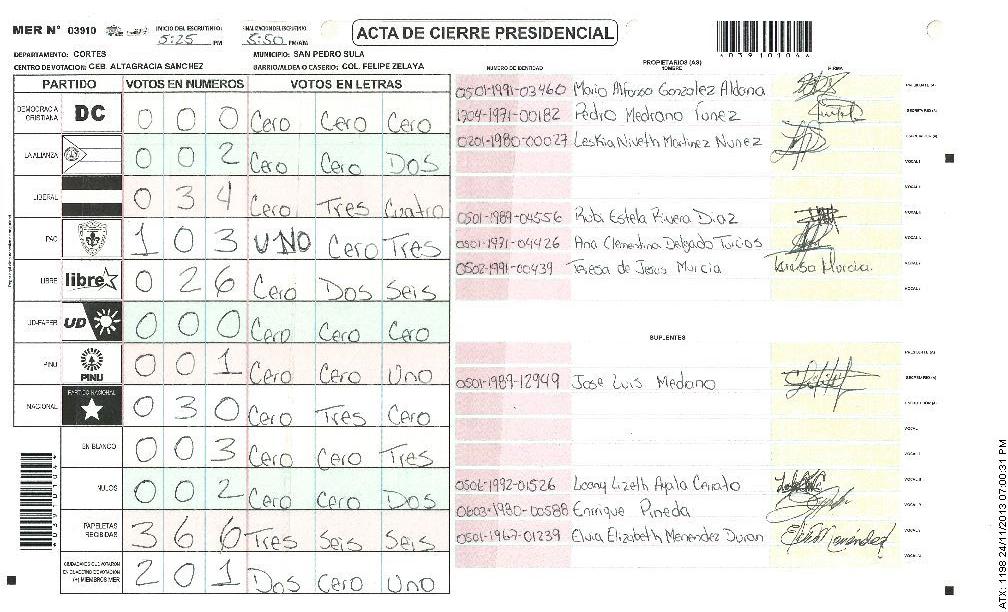 MER N° 03910
INICIO DEL ESCRUTINIO:
5:25 PM
FINALIZACION DEL ESCRUTINIO:
5:50 PM/AM
ACTA DE CIERRE PRESIDENCIAL
DEPARTAMENTO: CORTES
MUNICIPIO: SAN PEDRO SULA
CENTRO DE VOTACION: CEB. ALTAGRACIA SANCHEZ
BARRIO/ALDEA O CASERIO: COL. FELIPE ZELAYA
PARTIDO VOTOS EN NUMEROS VOTOS EN LETRAS
DEMOCRACIA CRISTIANA DC 0 0 0 Cero Cero Cero
LA ALIANZA 0 0 2 Cero Cero Dos
LIBERAL 0 3 4 Cero Tres Cuatro
PAC 1 0 3 UNO Cero Tres
LIBRE libre 0 2 6 Cero Dos Seis
UD-FAPER UD 0 0 0 Cero Cero Cero
PINU PINU 0 0 1 Cero Cero Uno
NACIONAL PARTIDO NACIONAL 0 3 0 Cero Tres Cero
EN BLANCO 0 0 3 Cero Cero Tres
NULOS 0 0 2 Cero Cero Dos
PAPELETAS RECIBIDAS 3 6 6 Tres Seis Seis
CIUDADANOS QUE VOTARON EN CUADERNO DE VOTACION (+) MIEMBROS MER 2 0 1 Dos Cero Uno
PROPIETARIOS (AS)
NUMERO DE IDENTIDAD NOMBRE FIRMA
0501-1991-03460 Mario Alfonso Gonzalez Aldana PRESIDENTE (A)
1704-1971-00182 Pedro Medrano Funez SECRETARIO (A)
0201-1980-00027 Leskia Niveth Martinez Nunez ESCRUTADOR (A)
VOCAL I
VOCAL II
0501-1989-04556 Ruba Estela Rivera Diaz
0501-1971-04426 Ana Clementina Delgado Turcios
0502-1991-00439 Teresa de Jesus Murcia Teresa Murcia
SUPLENTES
PRESIDENTE (A)
0501-1989-12949 Jose Luis Medano SECRETARIO (A)
ESCRUTADOR (A)
VOCAL I
VOCAL II
0506-1992-01526 Loany Lizeth Ayala Cerrato
0603-1980-00588 Enrique Pineda
0501-1967-01239 Elvia Elizabeth Menendez Duran
ATX: 1198 24/11/2013 07:00:31 PM